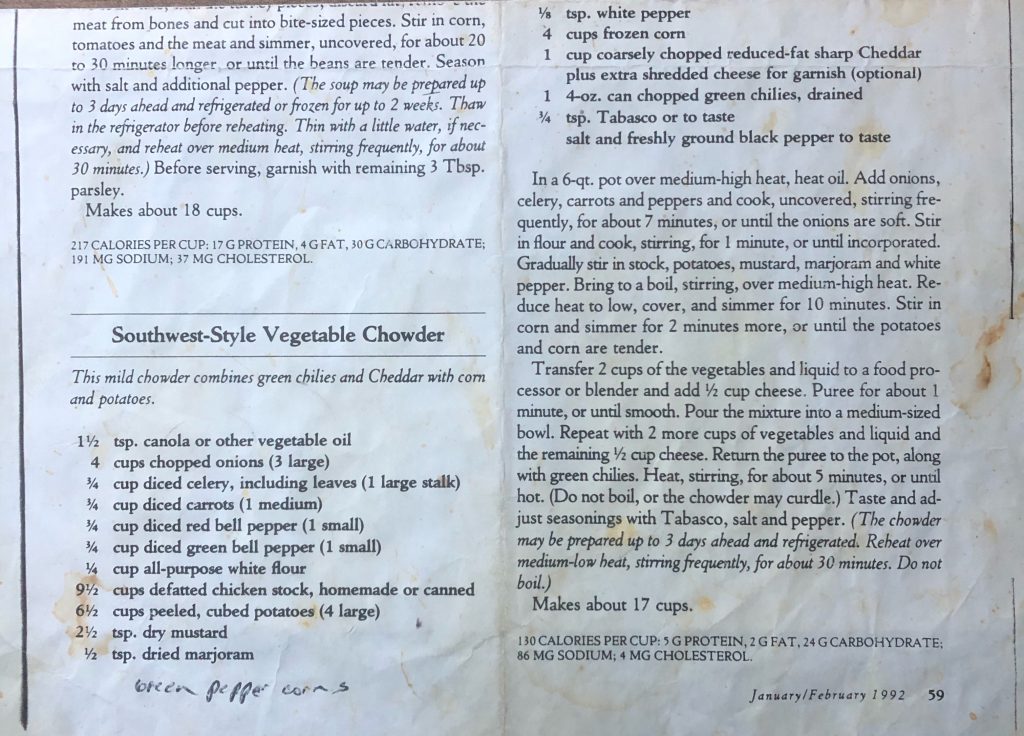 meat from bones and cut into bite-sized pieces. Stir in corn,
tomatoes and the meat and simmer, uncovered, for about 20
to 30 minutes longer, or until the beans are tender. Season
with salt and additional pepper. (The soup may be prepared up
to 3 days ahead and refrigerated or frozen for up to 2 weeks. Thaw
in the refrigerator before reheating. Thin with a little water, if nec-
essary, and reheat over medium heat, stirring frequently, for about
30 minutes.) Before serving, garnish with remaining 3 Tbsp.
parsley.
Makes about 18 cups.
217 CALORIES PER CUP: 17 G PROTEIN, 4 G FAT, 30 G CARBOHYDRATE;
191 MG SODIUM; 37 MG CHOLESTEROL.
Southwest-Style Vegetable Chowder
This mild chowder combines green chilies and Cheddar with corn
and potatoes.
1½ tsp. canola or other vegetable oil
4 cups chopped onions (3 large)
¾ cup diced celery, including leaves (1 large stalk)
¾ cup diced carrots (1 medium)
¾ cup diced red bell pepper (1 small)
¾ cup diced green bell pepper (1 small)
¼ cup all-purpose white flour
9½ cups defatted chicken stock, homemade or canned
6½ cups peeled, cubed potatoes (4 large)
2½ tsp. dry mustard
½ tsp. dried marjoram
Green pepper corns
⅛ tsp. white pepper
4 cups frozen corn
1 cup coarsely chopped reduced-fat sharp Cheddar
plus extra shredded cheese for garnish (optional)
1 4-oz. can chopped green chilies, drained
¾ tsp. Tabasco or to taste
salt and freshly ground black pepper to taste
In a 6-qt. pot over medium-high heat, heat oil. Add onions,
celery, carrots and peppers and cook, uncovered, stirring fre-
quently, for about 7 minutes, or until the onions are soft. Stir
in flour and cook, stirring, for 1 minute, or until incorporated.
Gradually stir in stock, potatoes, mustard, marjoram and white
pepper. Bring to a boil, stirring, over medium-high heat. Re-
duce heat to low, cover, and simmer for 10 minutes. Stir in
corn and simmer for 2 minutes more, or until the potatoes
and corn are tender.
Transfer 2 cups of the vegetables and liquid to a food pro-
cessor or blender and add ½ cup cheese. Puree for about 1
minute, or until smooth. Pour the mixture into a medium-sized
bowl. Repeat with 2 more cups of vegetables and liquid and
the remaining ½ cup cheese. Return the puree to the pot, along
with green chilies. Heat, stirring, for about 5 minutes, or until
hot. (Do not boil, or the chowder may curdle.) Taste and ad-
just seasonings with Tabasco, salt and pepper. (The chowder
may be prepared up to 3 days ahead and refrigerated. Reheat over
medium-low heat, stirring frequently, for about 30 minutes. Do not
boil.)
Makes about 17 cups.
130 CALORIES PER CUP: 5 G PROTEIN, 2 G FAT, 24 G CARBOHYDRATE;
86 MG SODIUM; 4 MG CHOLESTEROL.
January/February 1992 59